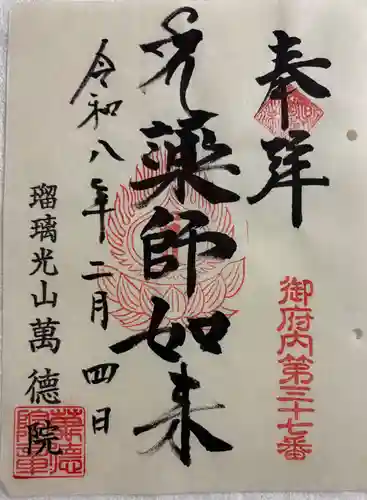 奉拝
御府内第三十七番
薬師如来
令和八年二月四日
瑠璃光山萬徳院